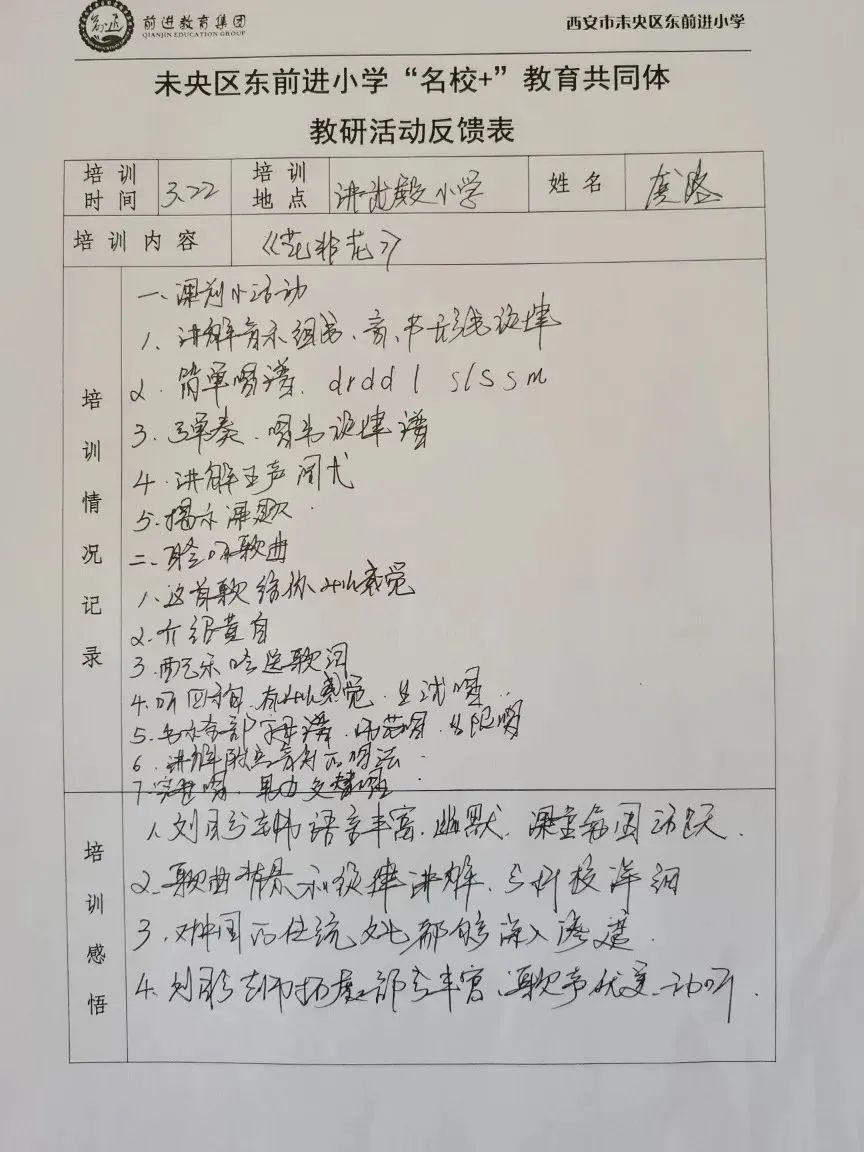 前进教育集团
QIANJIN EDUCATION GROUP
西安市未央区东前进小学
未央区东前进小学“名校+”教育共同体
教研活动反馈表
培训时间 3.22 培训地点 讲武殿小学 姓名
培训内容 《花非花》
培训情况记录
一、课前小活动
1、讲解音乐组成、音、节 旋律
2. 简单唱谱. drdd l slssm
3. 弹奏、唱出旋律谱
4. 讲解五声调式
5. 揭示课题.
二、聆听歌曲
1、这首歌给你什么感觉
2. 介绍黄自
3. 歌词
4. 听 有什么感觉、生试唱
5. 范唱、生跟唱
6. 讲解 的唱法
7. 完整唱、男女交替唱
培训感悟
1、刘 老师语言丰富、幽默、课堂氛围活跃.
2、歌曲背景和旋律讲解、分析 详细
3. 对中国的传统文化都能够深入渗透.
4. 刘 老师拓展部分丰富、歌声优美、动听.